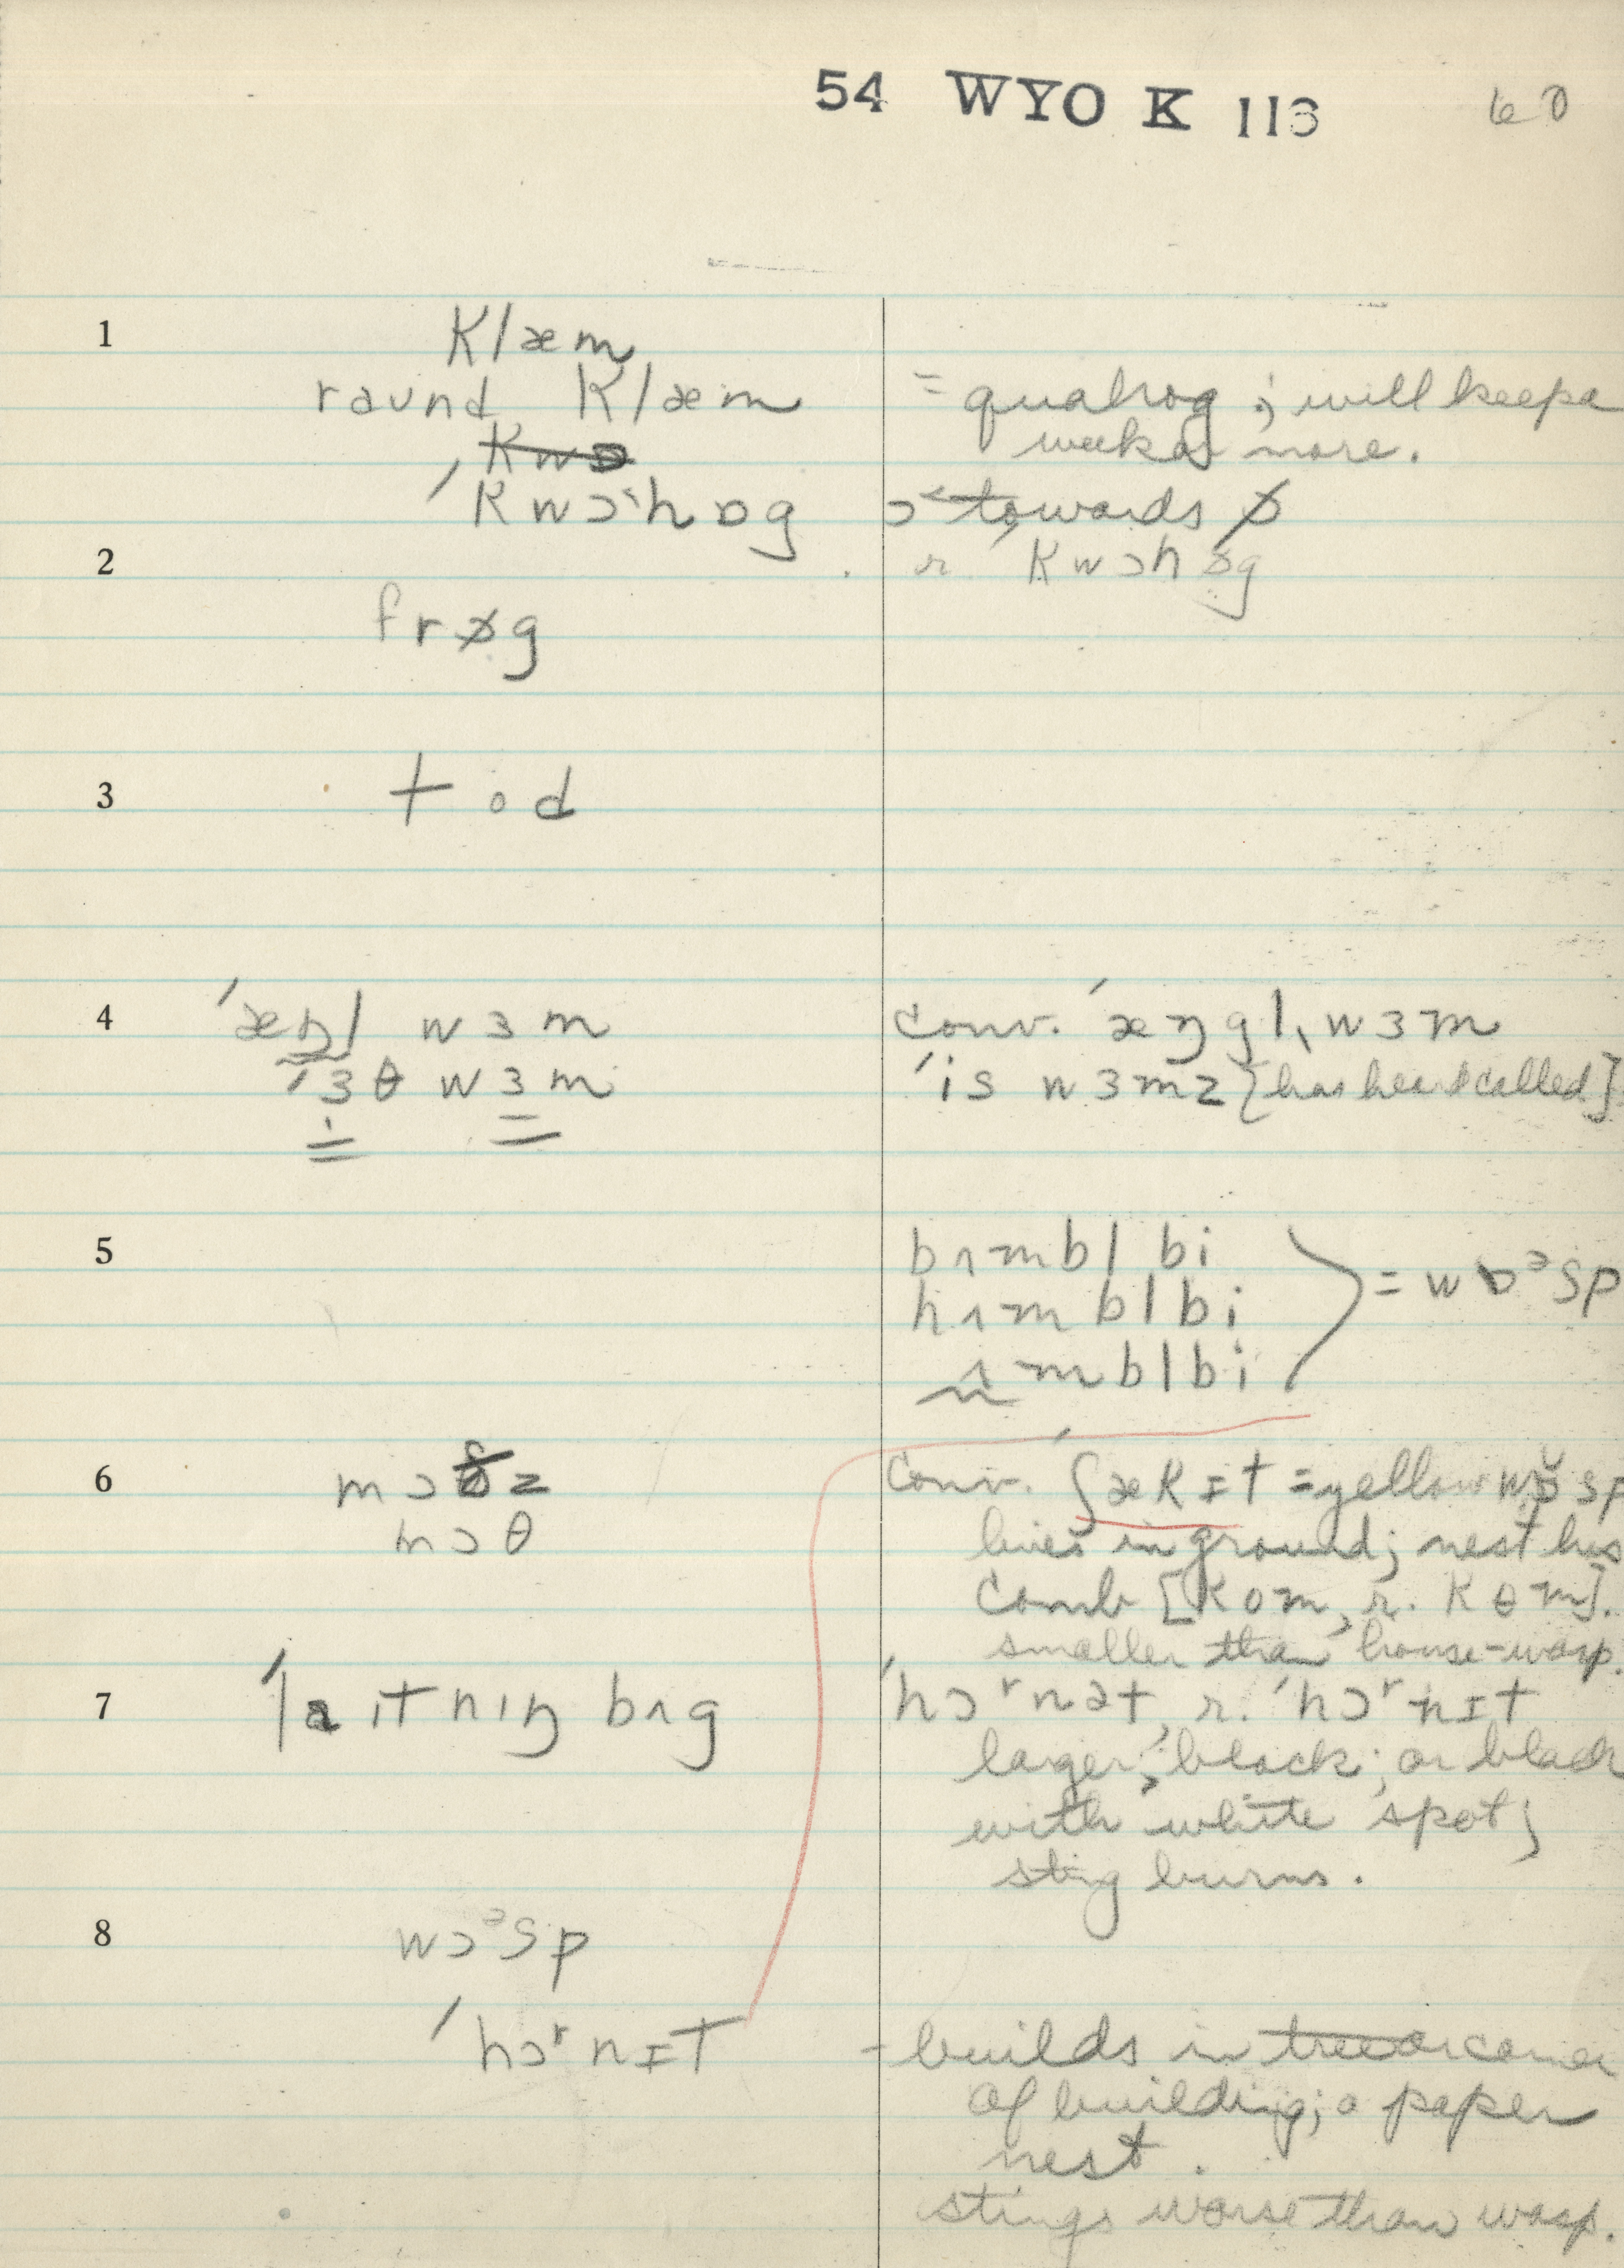 54 WYO K 113 60
1 klæm
raʊnd klæm = quahog; will keep a
week or more.
kwɒ
ˈkwɔ˂hɒg ɔ˂ towards ɒ̸
2 r. ˈkwɔhɒ̸g
frɒ̸g
3 tod
4 ˈæŋl wɜm conv. ˈæŋgl̩wɜm
ˈɜθ wɜm ˈis wɜmz [has heard called]
5 bʌmbl bi
hʌmbl bi = wɒᵊsp
ʌmbl bi
6 mɔðz conv. ˈʃækɪt = yellow wɒ̆sp
mɔθ lives in ground; nest has
comb [kom, r. kɵm].
smaller than house-wasp.
7 ˈlaɪtnɪŋ bʌg ˈhɔʳnət, r. ˈhɔʳnɪt
larger; black; or black
with white spot;
sting burns.
8 wɔᵊsp
ˈhɔʳnɪt - builds in tree or corner
of building; a paper
nest.
stings worse than wasp.